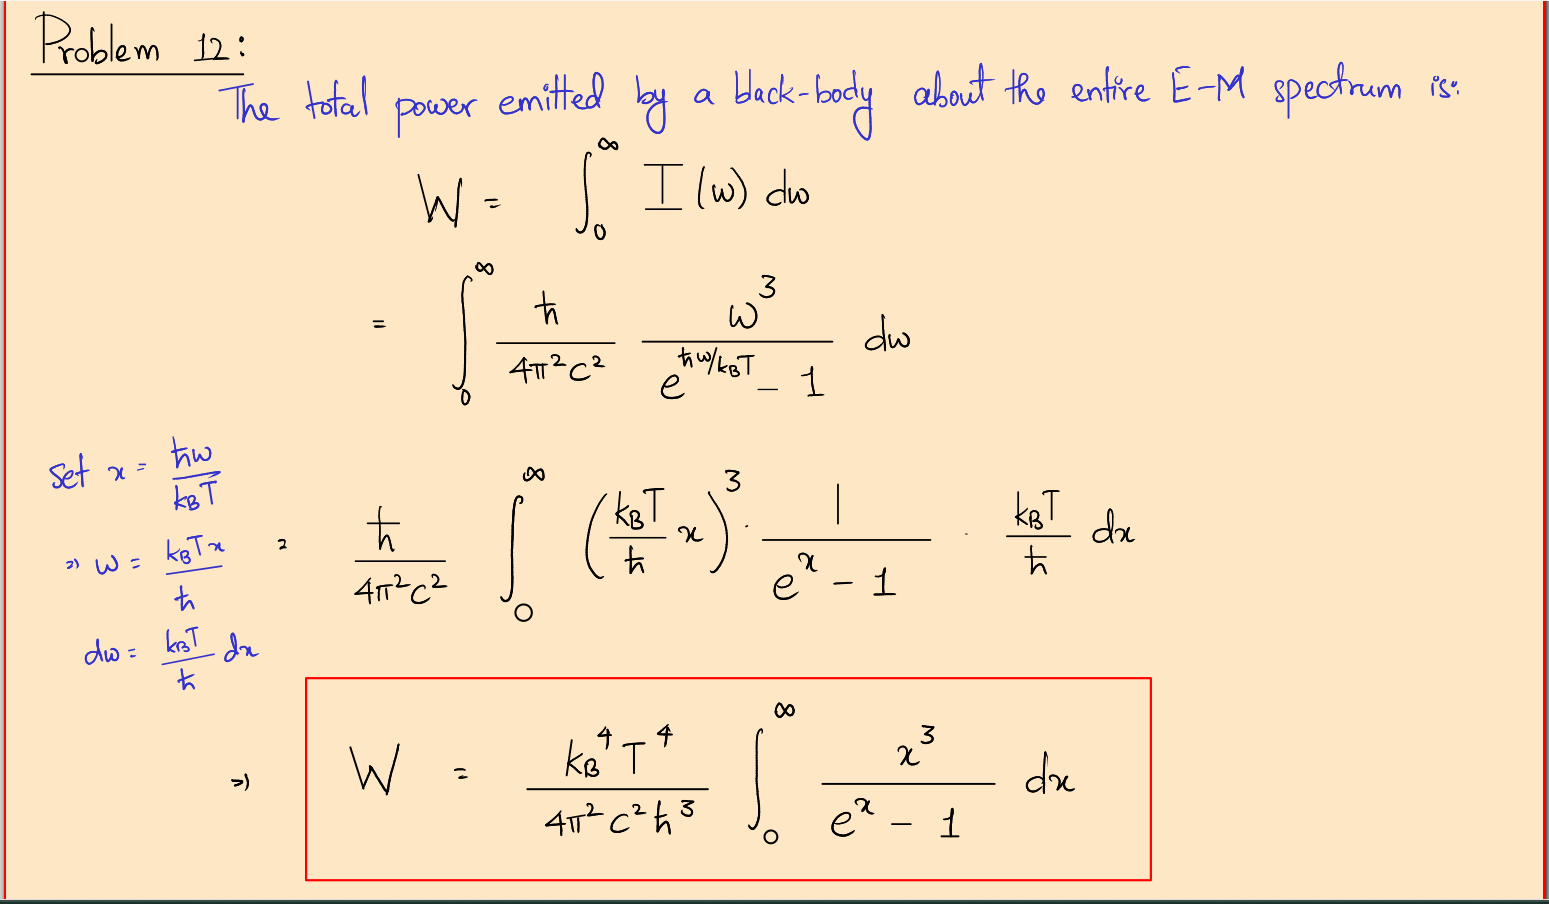 Problem 12:
The total power emitted by a black-body about the entire E-M spectrum is:
W = ∫₀^∞ I(ω) dω
= ∫₀^∞ ħ/(4π²c²) ω³/(e^(ħω/k_BT) - 1) dω
Set x = ħω/(k_BT)
⇒ ω = k_BTx/ħ
dω = k_BT/ħ dx
= ħ/(4π²c²) ∫₀^∞ (k_BT/ħ x)³ · 1/(e^x - 1) · k_BT/ħ dx
⇒ W = k_B⁴T⁴/(4π²c²ħ³) ∫₀^∞ x³/(e^x - 1) dx